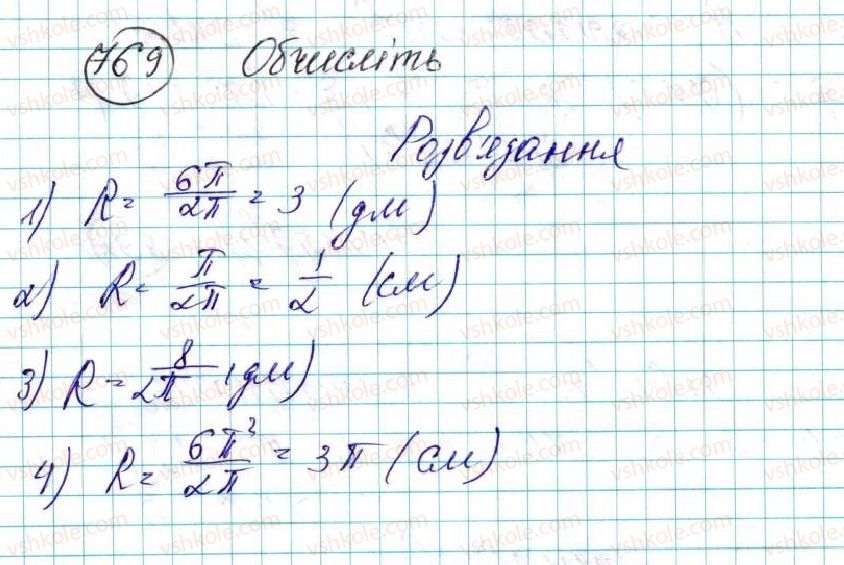 769 Обчисліть
Розв'язання
1) R = 6π/2π = 3 (дм)
2) R = π/2π = 1/2 (см)
3) R = 8/2π (дм)
4) R = 6π³/2π = 3π (см)
vshkole.com